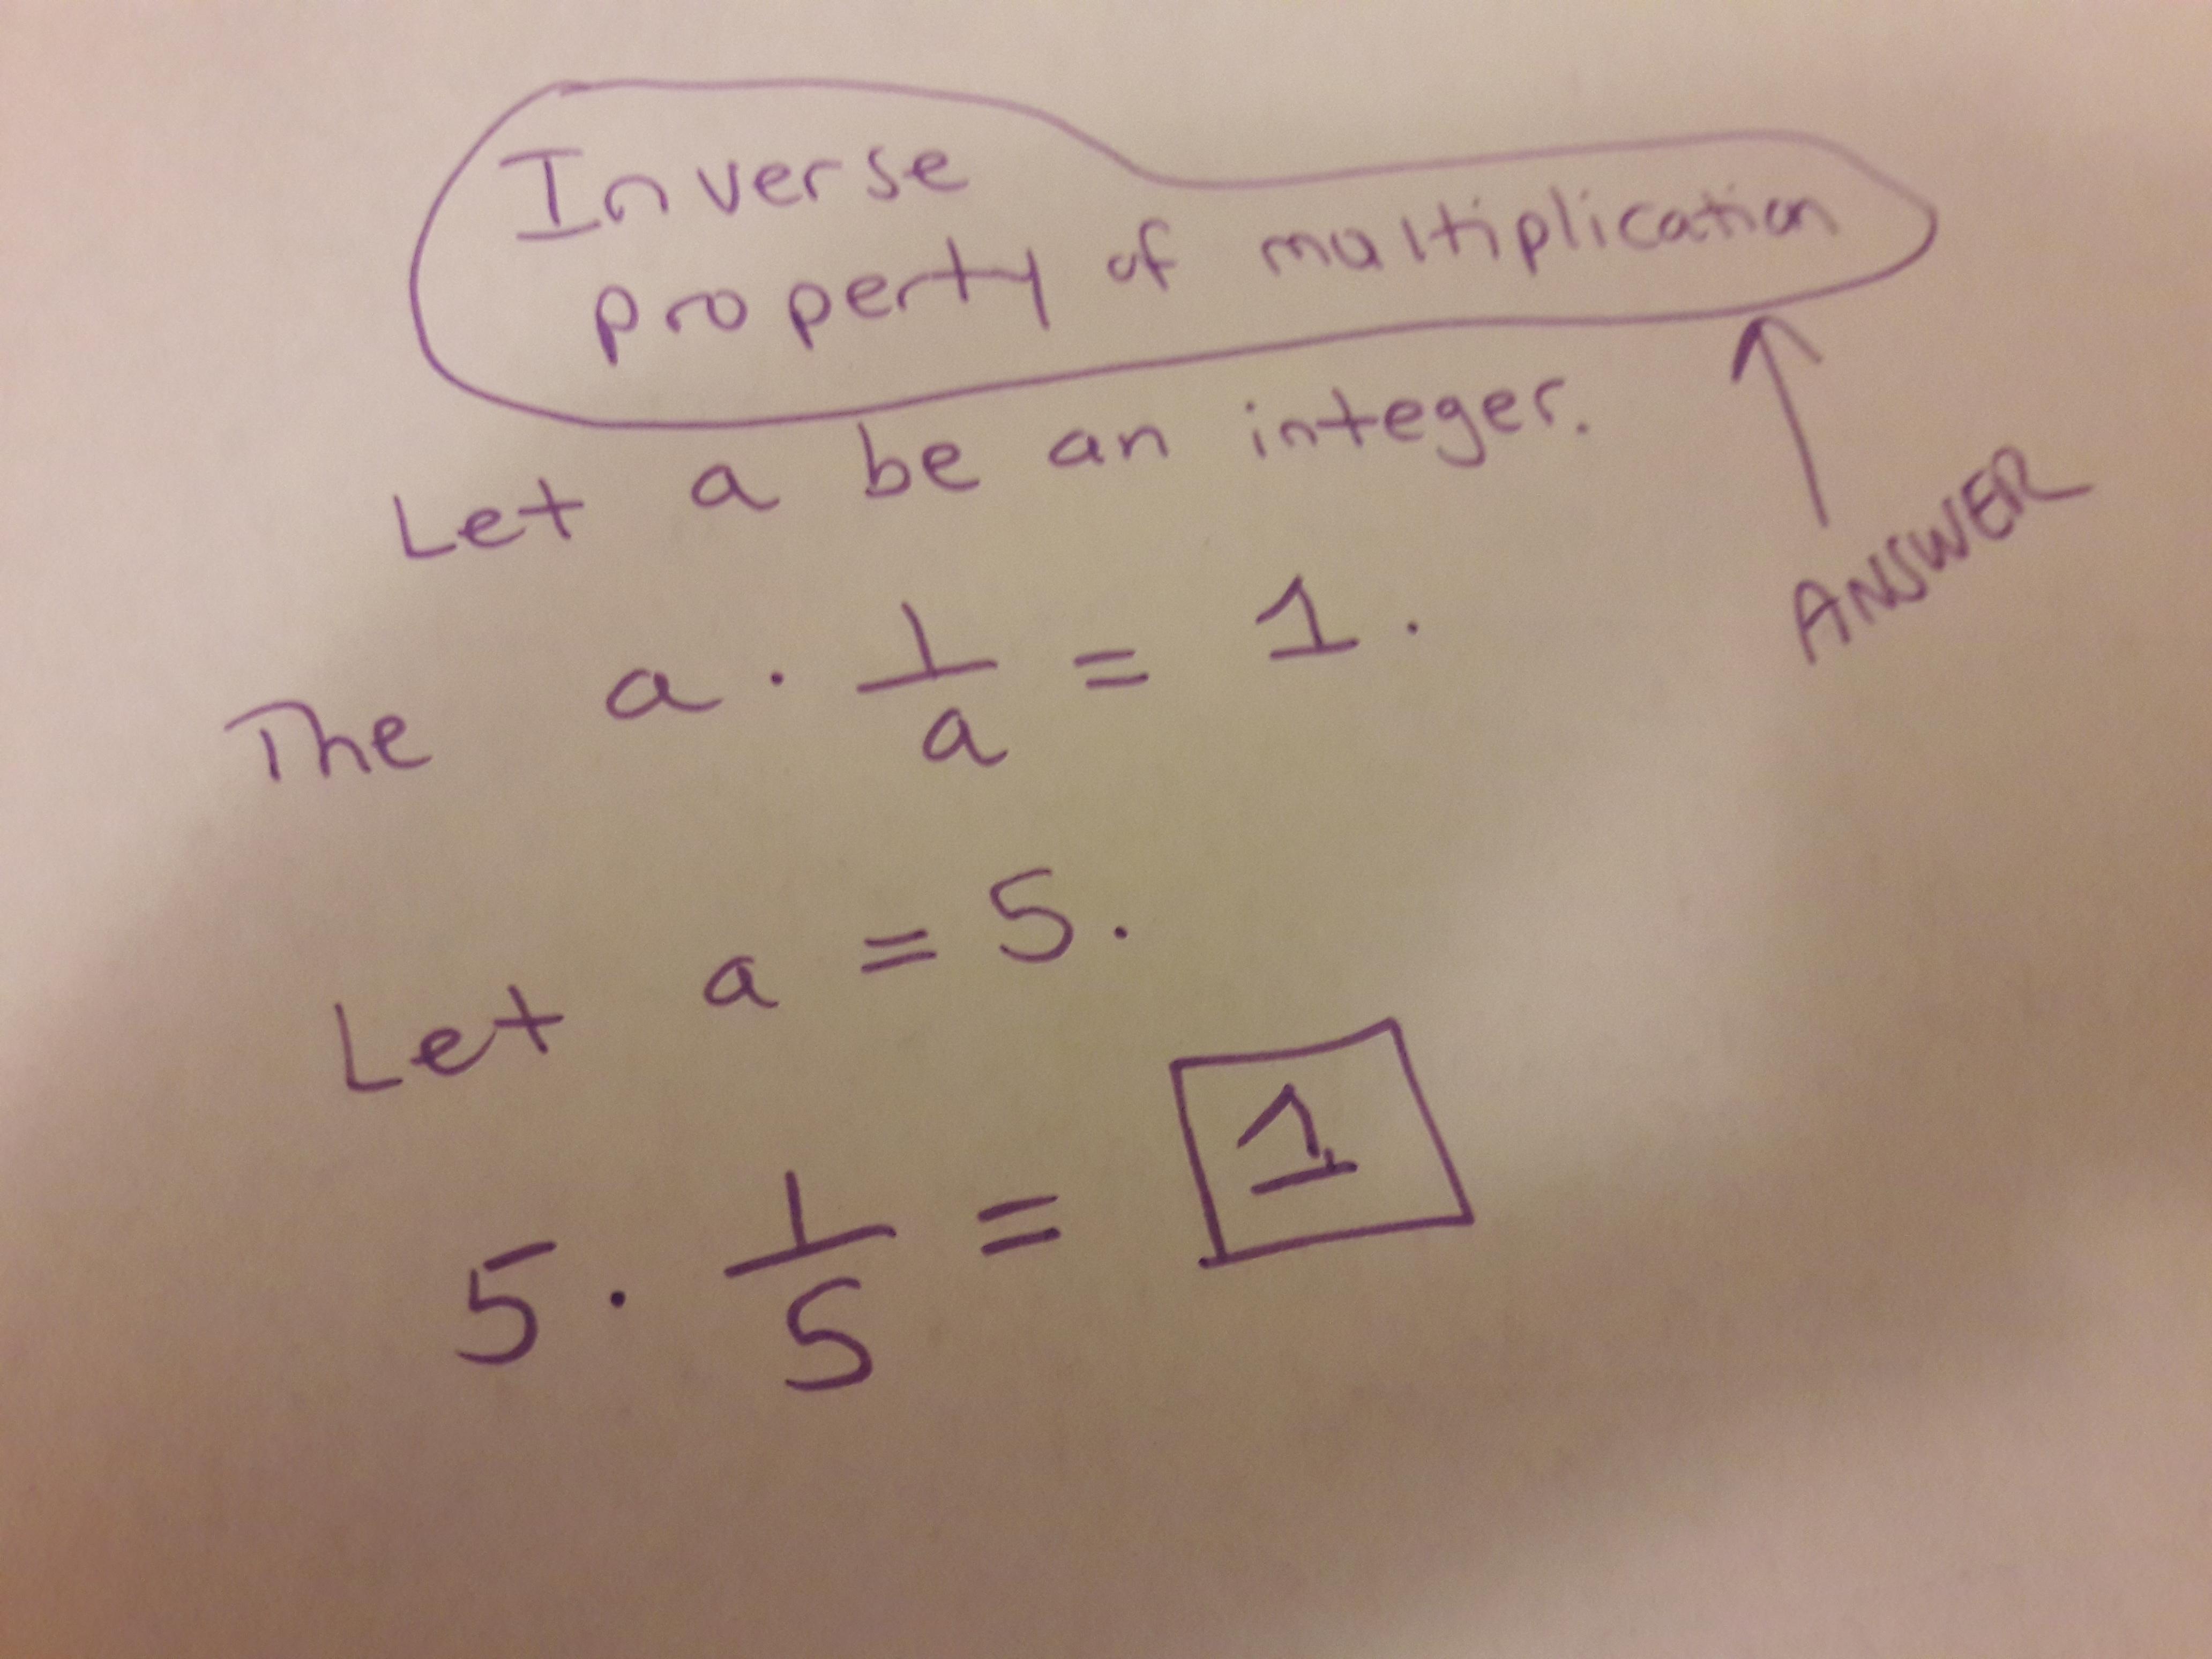 Inverse
property of multiplication
Let a be an integer.
ANSWER
The a · 1/a = 1.
Let a = 5.
5 · 1/5 = 1